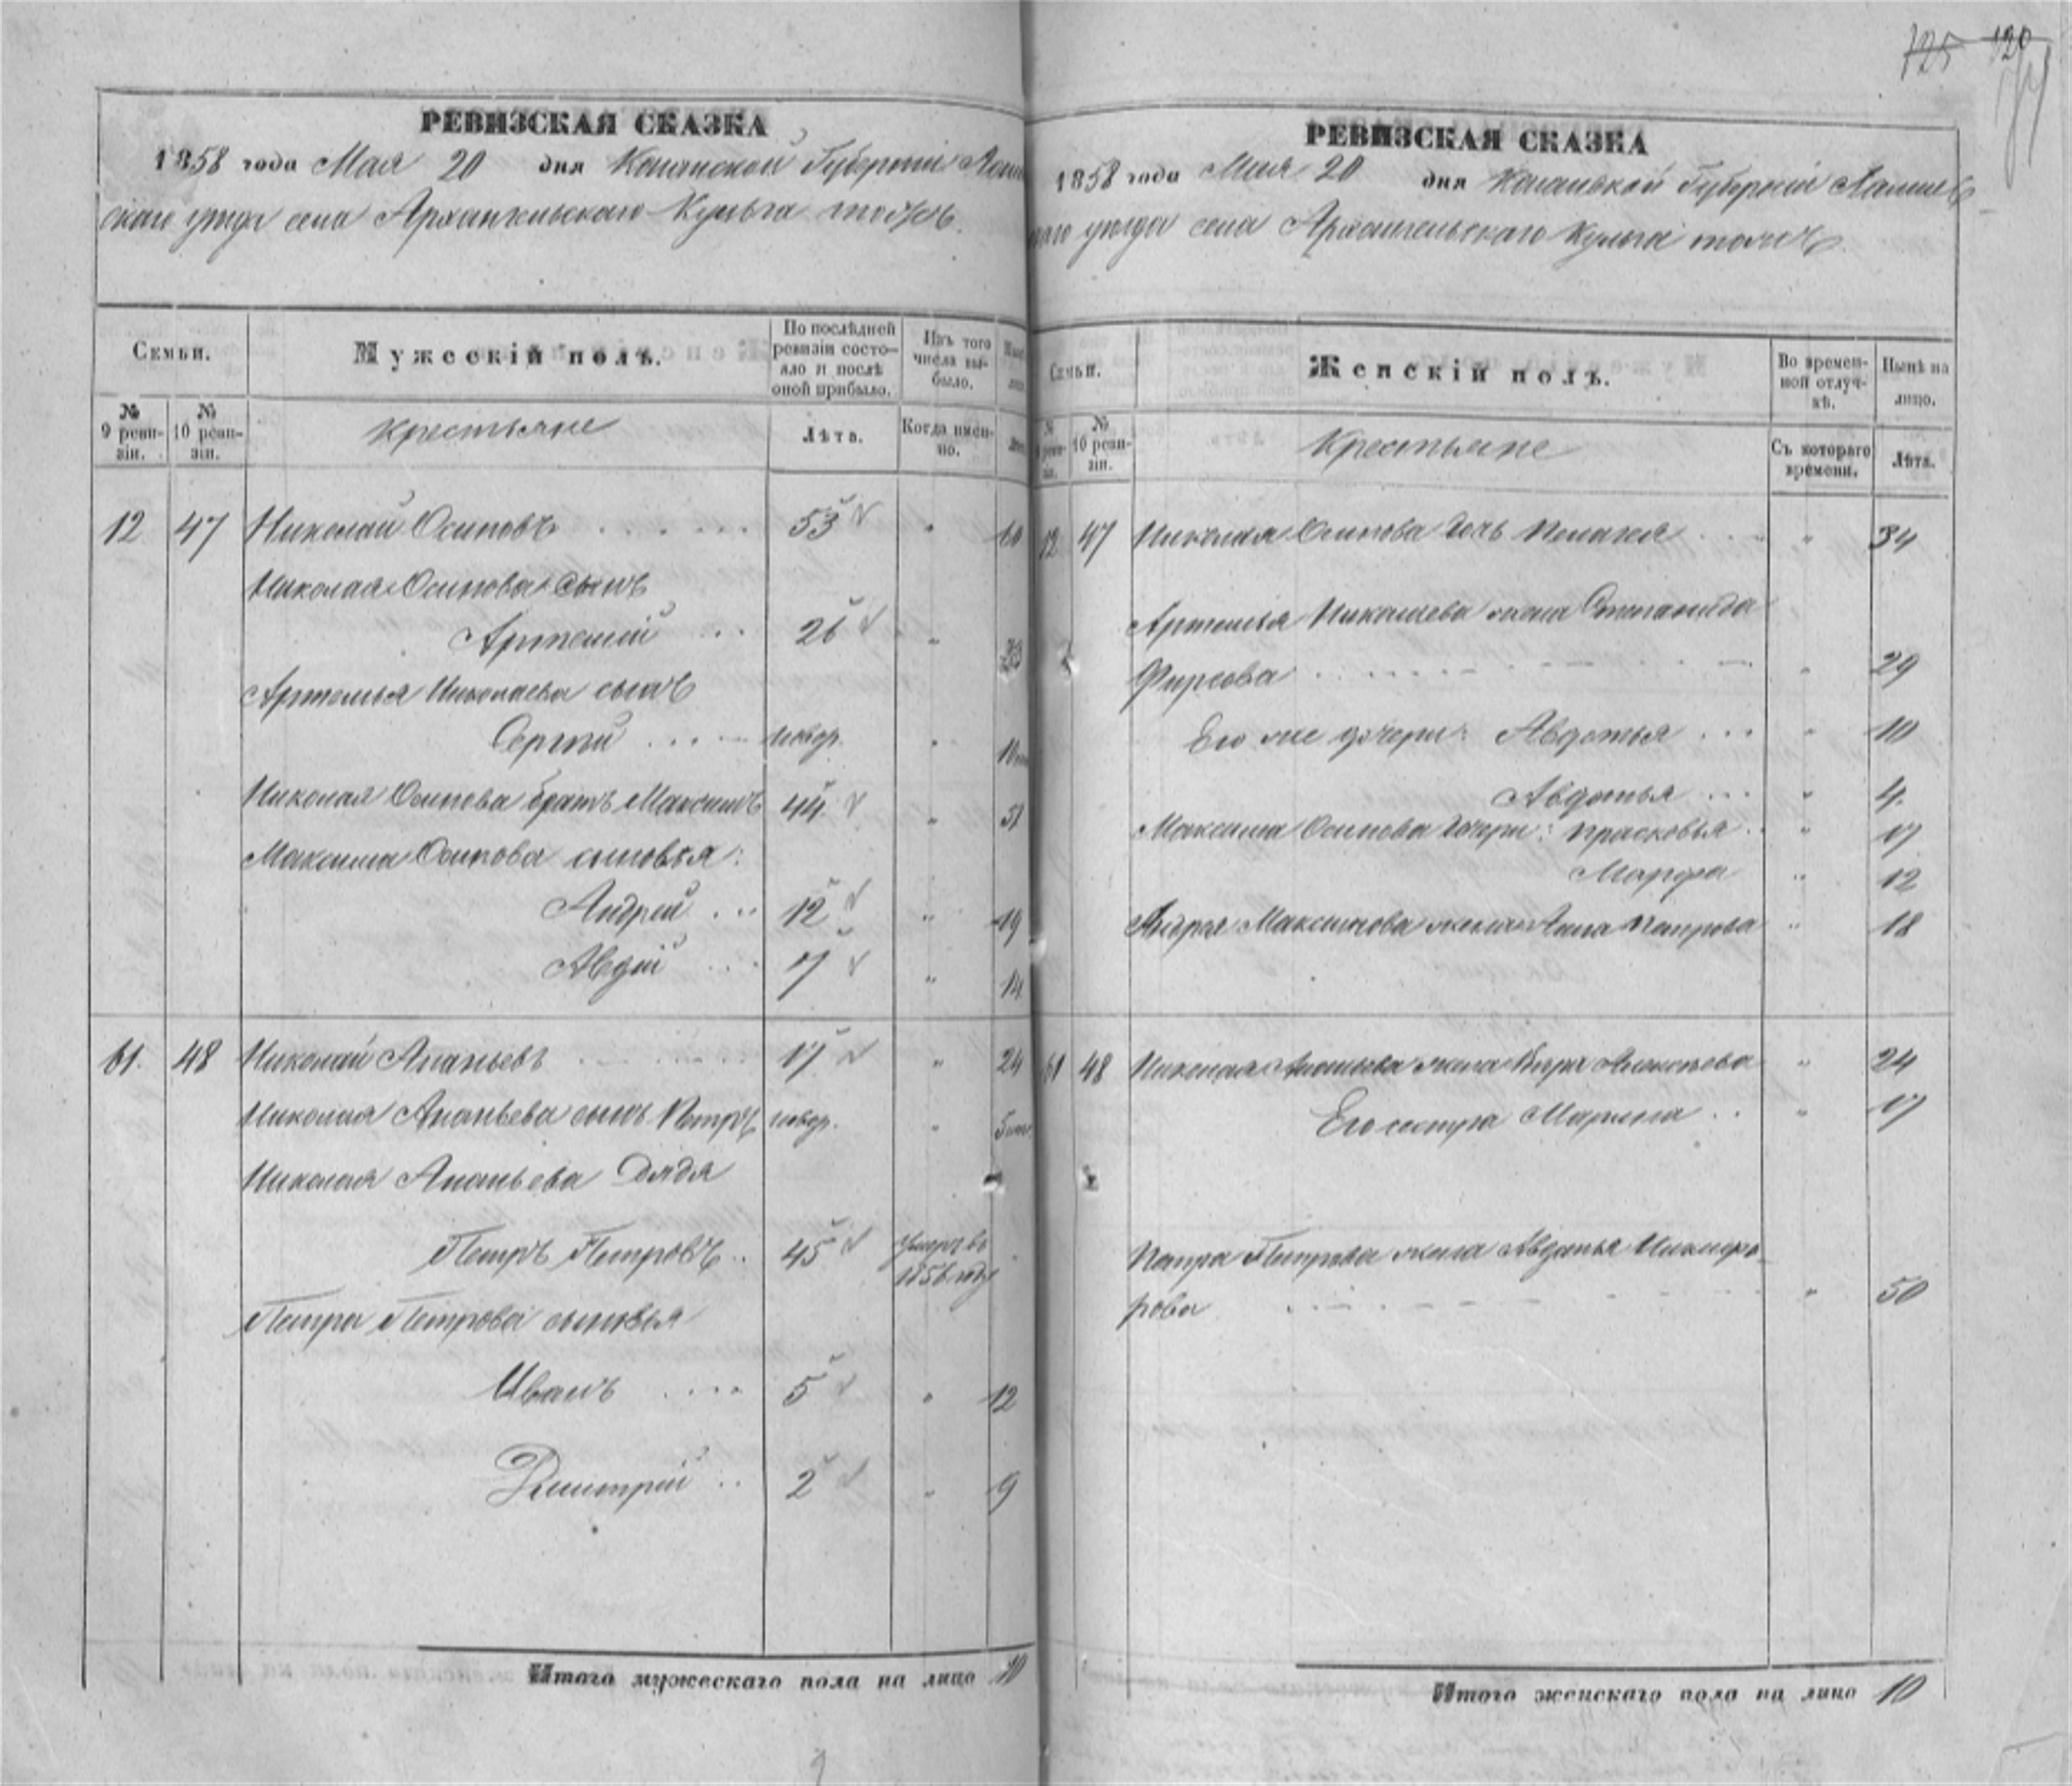 120
РЕВИЗСКАЯ СКАЗКА
1858 года Мая 20 дня Казанской Губерніи
скаго уезда села Архангельскаго Кульга тожъ.
Семьи.
Мужескій полъ.
По послѣдней ревизіи состо-
яло и послѣ
оной прибыло.
Изъ того
числа вы-
было.
№
9 реви-
зіи.
№
10 реви-
зіи.
крестьяне
Лѣта.
Когда имен-
но.
12 47 Николай Осиповъ 53 " 60
Николая Осипова сынъ
Артемій 26 " 33
Артемья Николаева сынъ
Сергій новор. "
Николая Осипова братъ Максимъ 44 " 51
Максима Осипова сыновья:
Андрей 12 " 19
Авдій 7 " 14
61. 48 Николай Ананьевъ 17 " 24
Николая Ананьева сынъ Петръ новор. "
Николая Ананьева Дядя
Петръ Петровъ 45 Умеръ въ
1856 году
Петра Петрова сыновья
Иванъ 5 " 12
Дмитрій 2 " 9
Итого мужескаго пола на лицо 10
РЕВИЗСКАЯ СКАЗКА
1858 года Мая 20 дня Казанской Губерніи Лаишев
скаго уезда села Архангельскаго Кульга тожъ.
Семьи.
Женскій полъ.
Во времен-
ной отлуч-
кѣ.
Нынѣ на
лицо.
№
10 реви-
зіи.
Крестьяне
Съ котораго
времени.
Лѣта.
12 47 Николая Осипова дочь Пелагея " 34
Артемья Николаева жена Степанида
Фирсова " 29
Его же дочери: Авдотья " 10
Авдотья " 4.
Максима Осипова дочери: Прасковья " 17
Марфа " 12
Андрея Максимова жена Анна Петрова " 18
61 48 Николая Ананьева жена Алексеева " 24
Его сестра Марина " 17
Петра Петрова жена Авдотья Никифо-
рова " 50
Итого женскаго пола на лицо 10